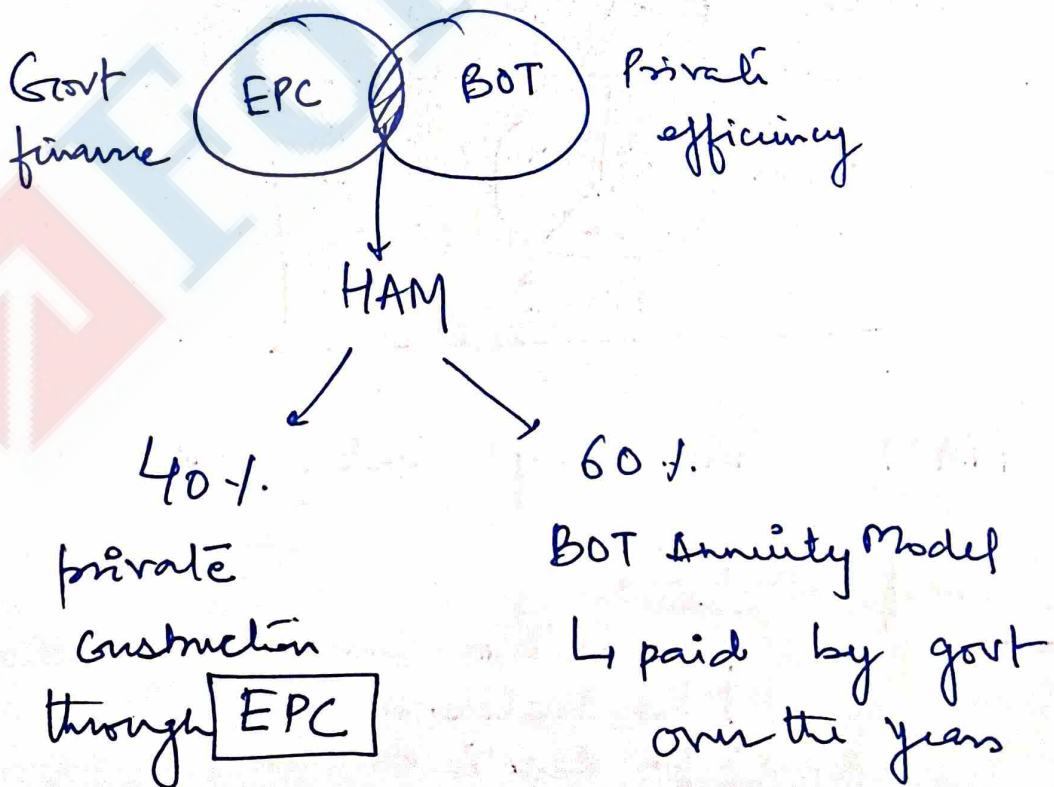 Govt
finance
EPC
BOT
Private
efficiency
HAM
40 %.
private
construction
through EPC
60 %.
BOT Annuity Model
↳ paid by govt
over the years